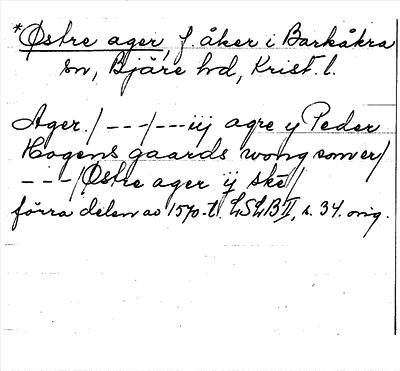 *Østre ager, f. åker i Barkåkra
sn, Bjäre hd, Krist. l.
Ager./ ---/---iij agre y Peder
Hogens gaards wong som er/
---/Østre ager ij ske/
förra delen av 1570-t. LSLB II, s. 34. orig.